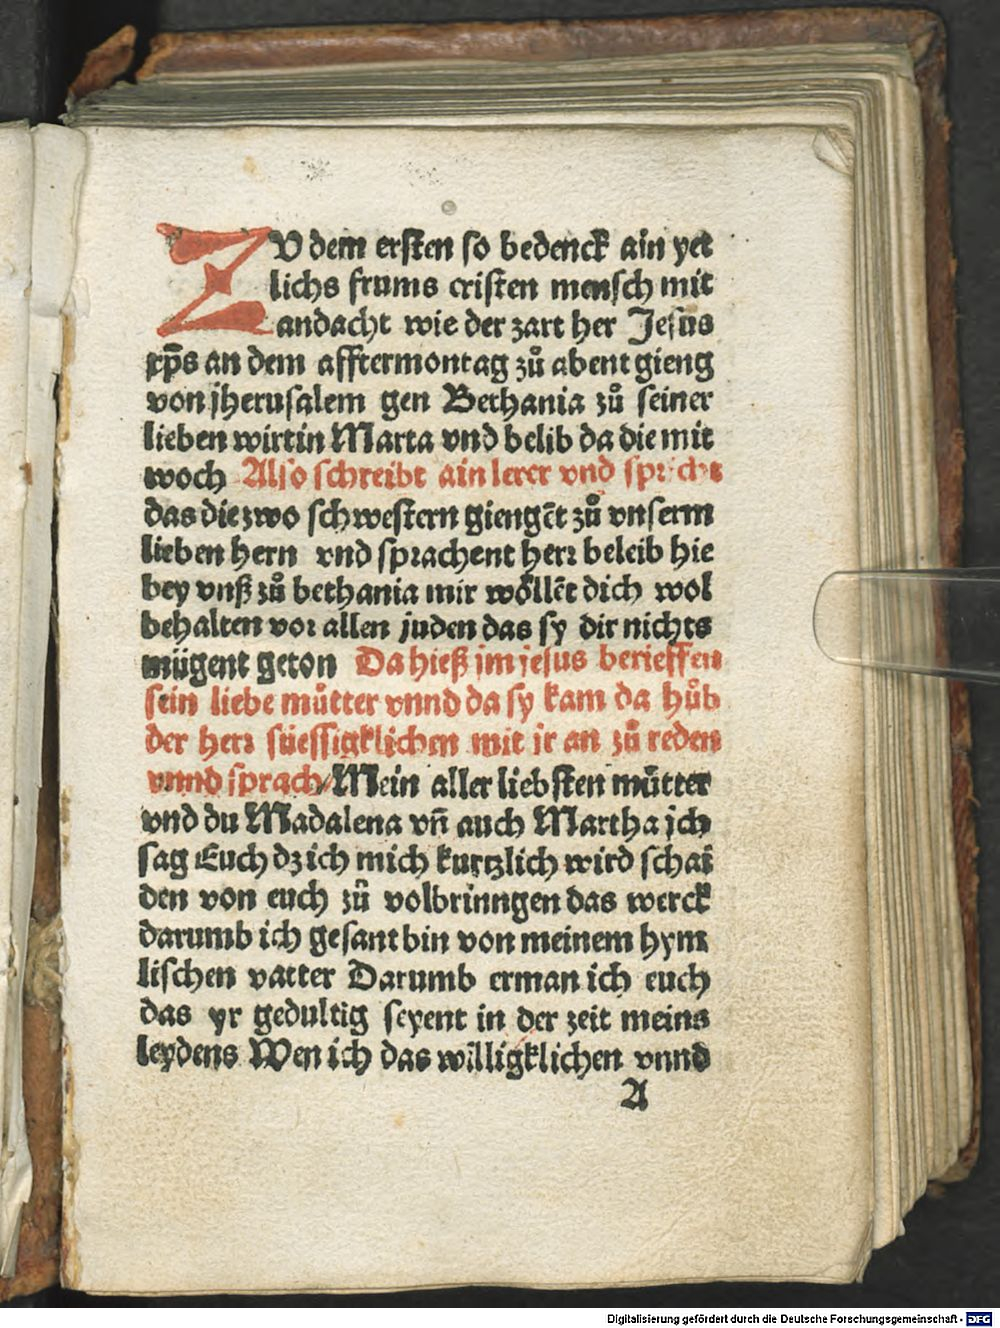 ZV dem ersten so bedenck ain yet
lichs frums cristen mensch mit
andacht wie der zart her Jesus
xp̄s an dem afftermontag zů abent gieng
von jherusalem gen Bethania zů seiner
lieben wirtin Marta vnd belib da die mit
woch Also schreibt ain lerer vnd spricht
das die zwo schwestern giengēt zů vnserm
lieben hern vnd sprachent herr beleib hie
bey vnß zů bethania mir wöllēt dich wol
behalten vor allen juden das sy dir nichts
mügent geton Da hieß jm jesus berieffen
sein liebe můtter vnnd da sy kam da hůb
der herr süessigklichen mit ir an zů reden
vnnd sprach/ Mein aller liebsten můtter
vnd du Madalena vn̄ auch Martha jch
sag Euch dz ich mich kurtzlich wird schai
den von euch zů volbrinngen das werck
darumb ich gesant bin von meinem hym
lischen vatter Darumb erman ich euch
das yr gedultig seyent in der zeit meins
leydens Wen ich das willigklichen vnnd
A
Digitalisierung gefördert durch die Deutsche Forschungsgemeinschaft - DFG